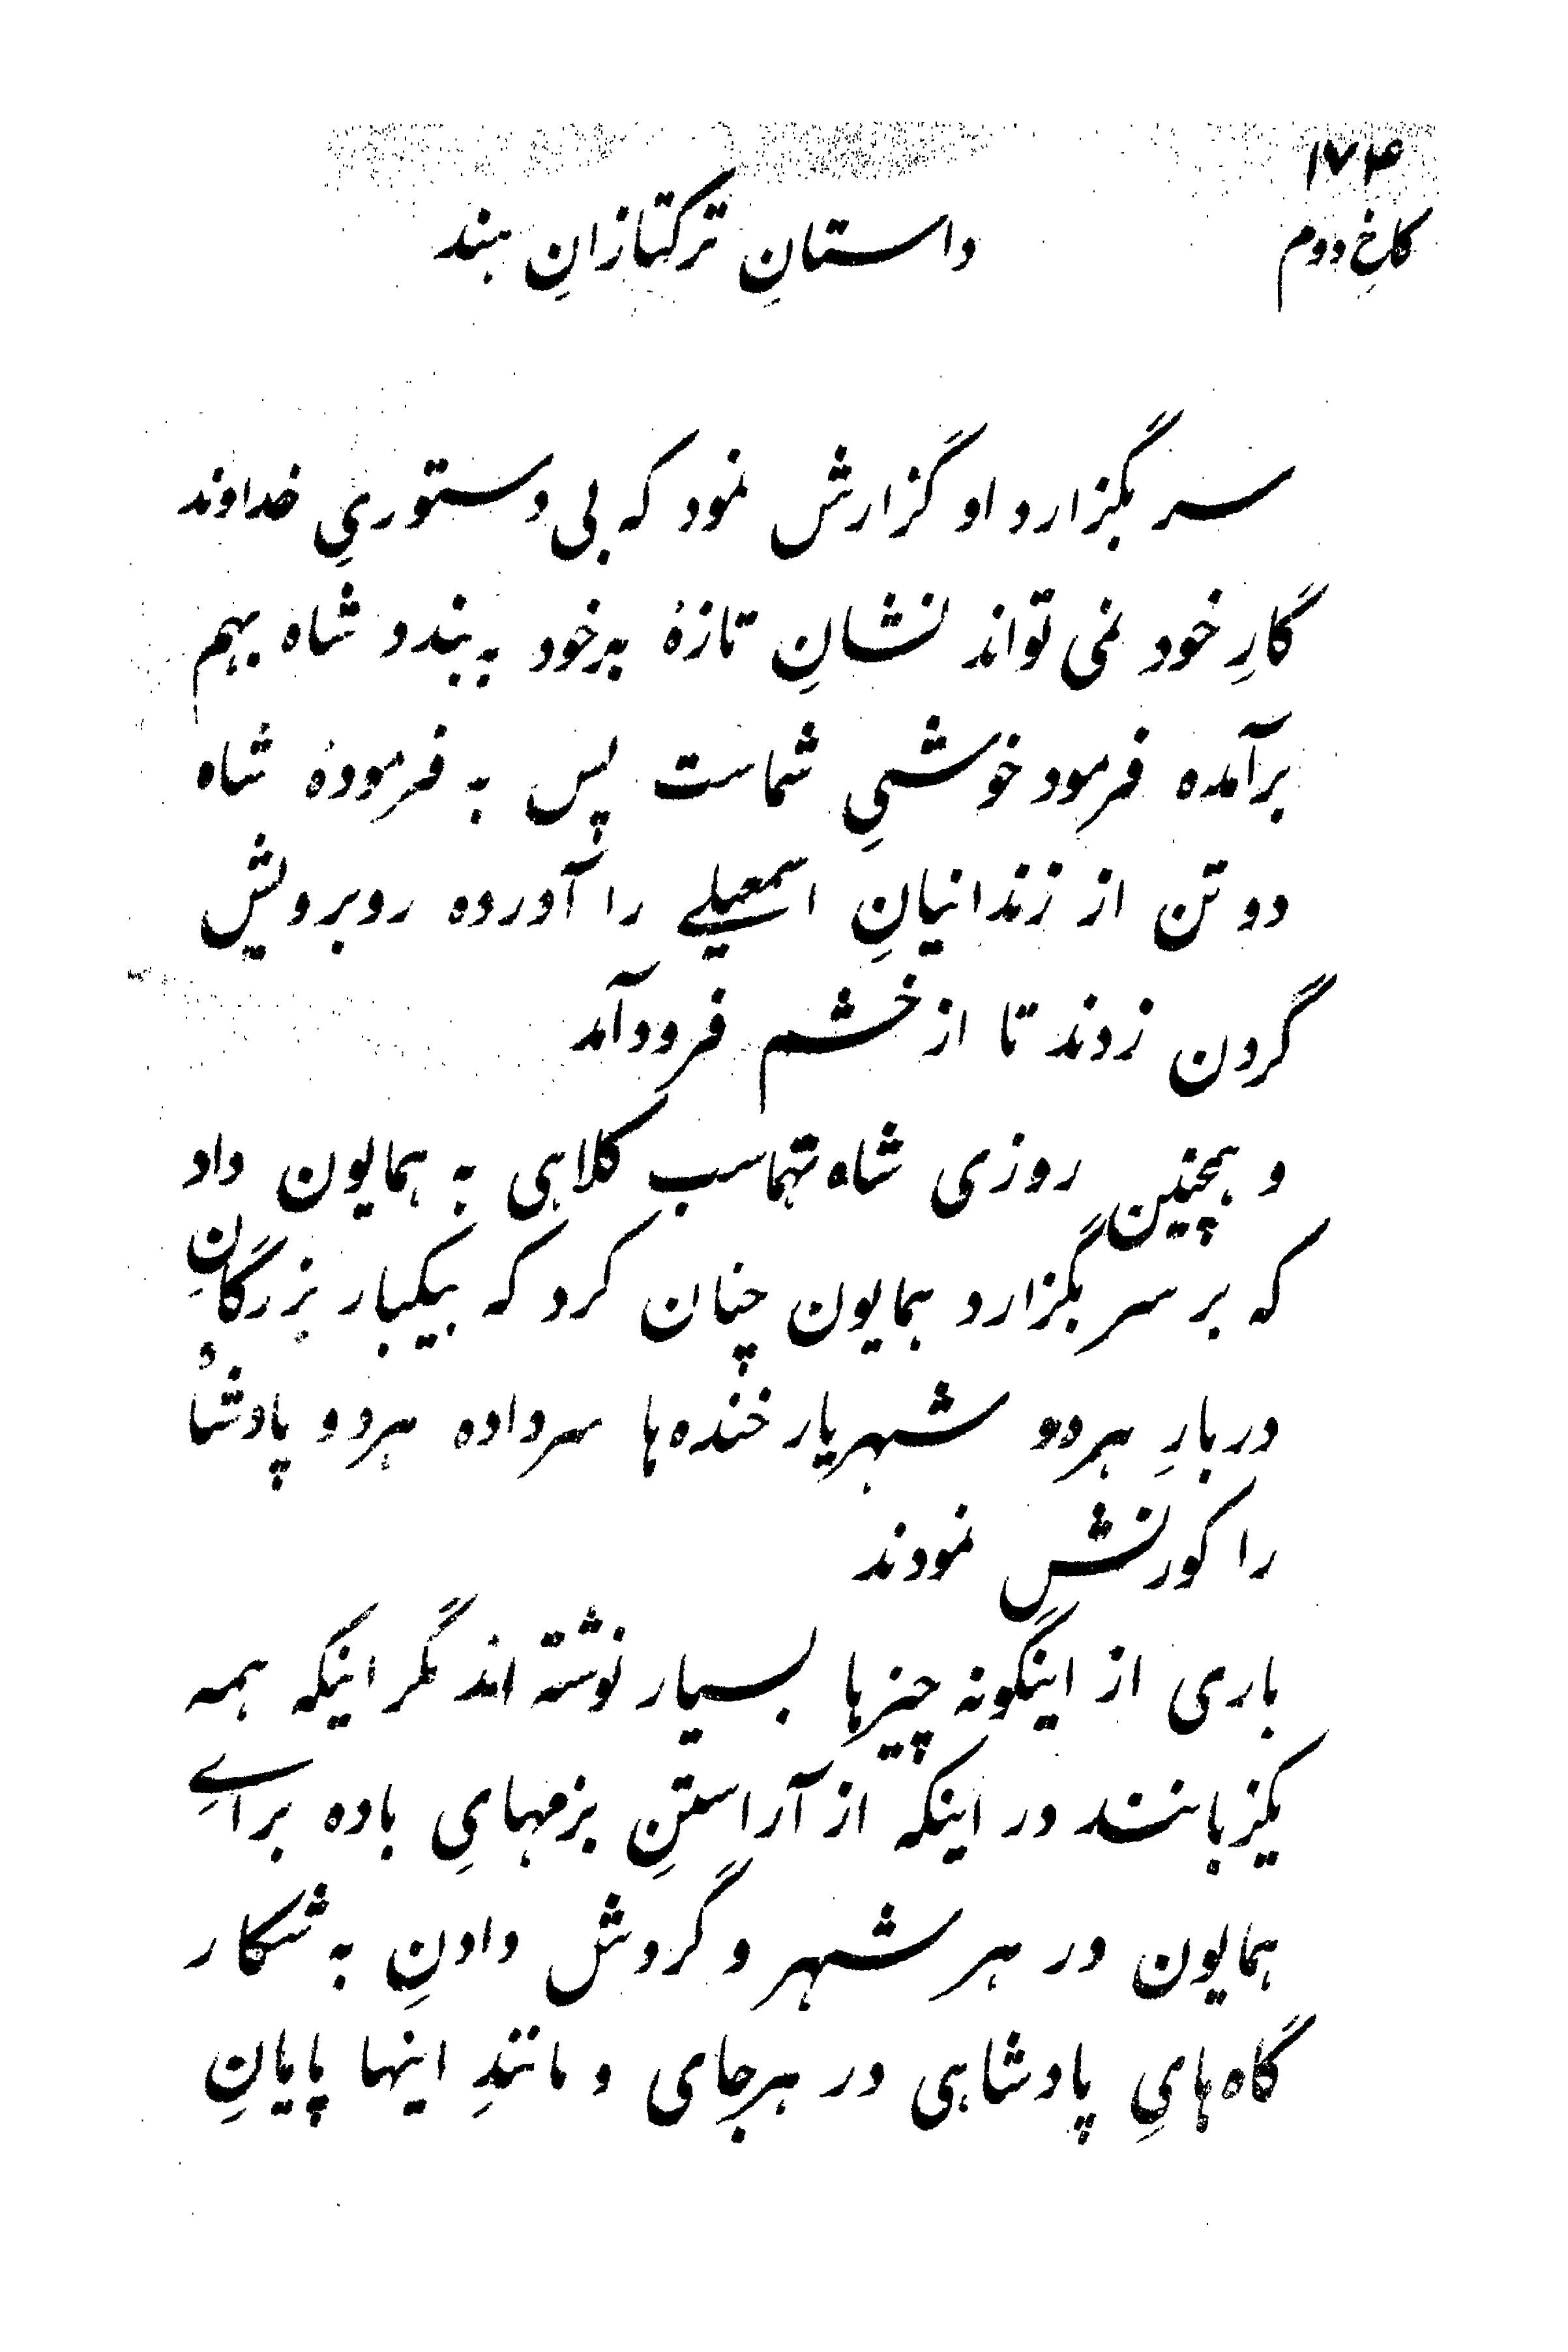 ۱۷۴
کاخِ دوم
داستانِ ترکتازانِ هند
سر بگزارد او گزارش نمود که بی دستوریِ خداوند
گارِ خود نمی تواند نشانِ تازهٔ بر خود به بندد شاه بهم
برآمده فرمود خوشیِ شماست پس به فرمودهٔ شاه
دو تن از زندانیانِ اسمعیلے را آورده روبرویش
گردن زدند تا از خشم فرود آمد
و همچنین روزی شاه تهماسب کلاهی به همایون داد
که بر سر بگزارد همایون چنان کرد که بیکبار بزرگانِ
دربارِ هردو شهریار خنده‌ها سرداده هردو پادشاه
را کورنش نمودند
باری از اینگونه چیزها بسیار نوشته اند مگر اینکه همه
یکزبانند در اینکه از آراستنِ بزمهایِ باده براےِ
همایون در هر شهر و گردش دادنِ به شکار
گاه‌هایِ پادشاهی در هرجای و مانندِ اینها پایانِ